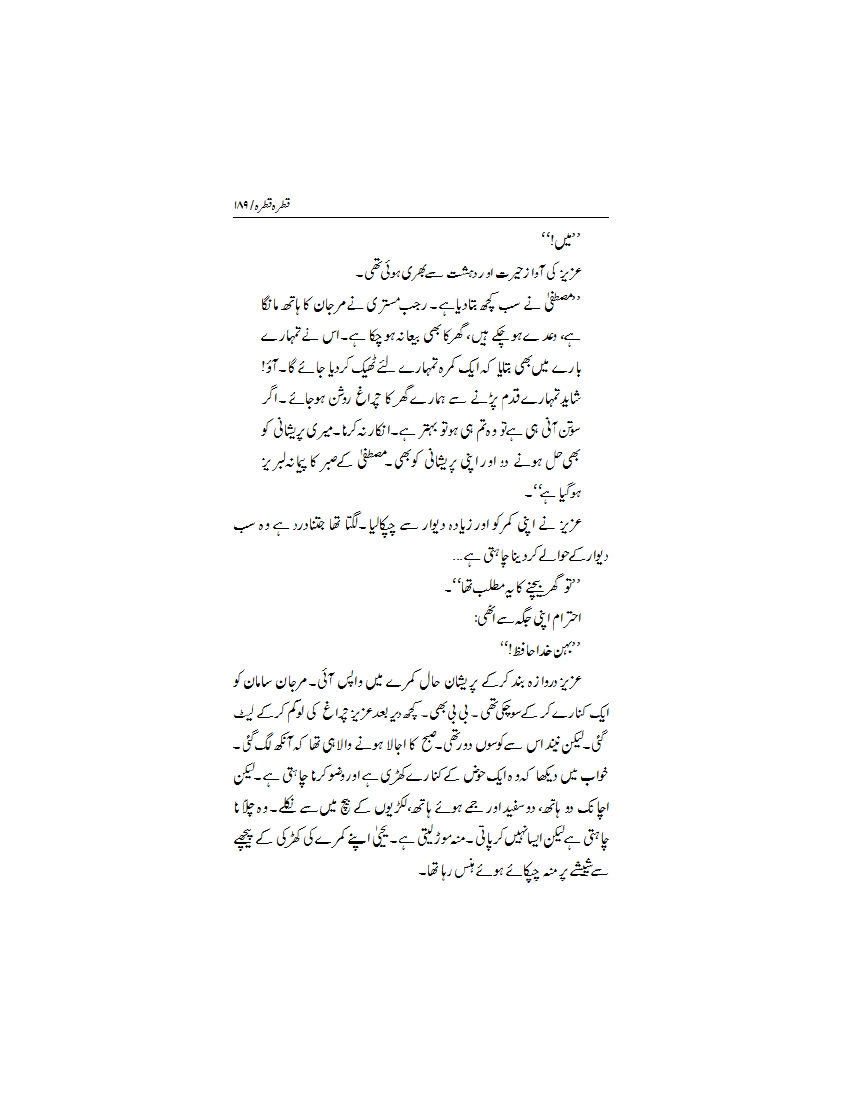 قطرہ قطرہ/ ۱۸۹
’’میں!‘‘
عزیز کی آواز حیرت اور دہشت سے بھری ہوئی تھی۔
’’مصطفیٰ نے سب کچھ بتادیا ہے۔ رجب مستری نے مرجان کا ہاتھ مانگا
ہے، وعدے ہوچکے ہیں، گھر کا بھی بیعانہ ہوچکا ہے۔ اس نے تمہارے
بارے میں بھی بتایا کہ ایک کمرہ تمہارے لئے ٹھیک کردیا جائے گا۔ آؤ!
شاید تمہارے قدم پڑنے سے ہمارے گھر کا چراغ روشن ہوجائے۔ اگر
سوتن آنی ہی ہے تو وہ تم ہی ہو تو بہتر ہے۔ انکار نہ کرنا۔ میری پریشانی کو
بھی حل ہونے دو اور اپنی پریشانی کو بھی۔ مصطفیٰ کے صبر کا پیمانہ لبریز
ہوگیا ہے‘‘۔
عزیز نے اپنی کمر کو اور زیادہ دیوار سے چپکالیا۔ لگتا تھا جتنا درد ہے وہ سب
دیوار کے حوالے کردینا چاہتی ہے...
’’تو گھر بیچنے کا یہ مطلب تھا‘‘۔
احترام اپنی جگہ سے اٹھی:
’’بہن خدا حافظ!‘‘
عزیز دروازہ بند کرکے پریشان حال کمرے میں واپس آئی۔ مرجان سامان کو
ایک کنارے کر کے سوچکی تھی۔ بی بی بھی۔ کچھ دیر بعد عزیز چراغ کی لو کم کرکے لیٹ
گئی۔ لیکن نیند اس سے کوسوں دور تھی۔ صبح کا اجالا ہونے والا ہی تھا کہ آنکھ لگ گئی۔
خواب میں دیکھا کہ وہ ایک حوض کے کنارے کھڑی ہے اور وضو کرنا چاہتی ہے۔ لیکن
اچانک دو ہاتھ، دو سفید اور جمے ہوئے ہاتھ، لکڑیوں کے بیچ میں سے نکلے۔ وہ چلّانا
چاہتی ہے لیکن ایسا نہیں کر پاتی۔ منہ موڑ لیتی ہے۔ یحییٰ اپنے کمرے کی کھڑکی کے پیچھے
سے شیشے پر منہ چپکائے ہوئے ہنس رہا تھا۔